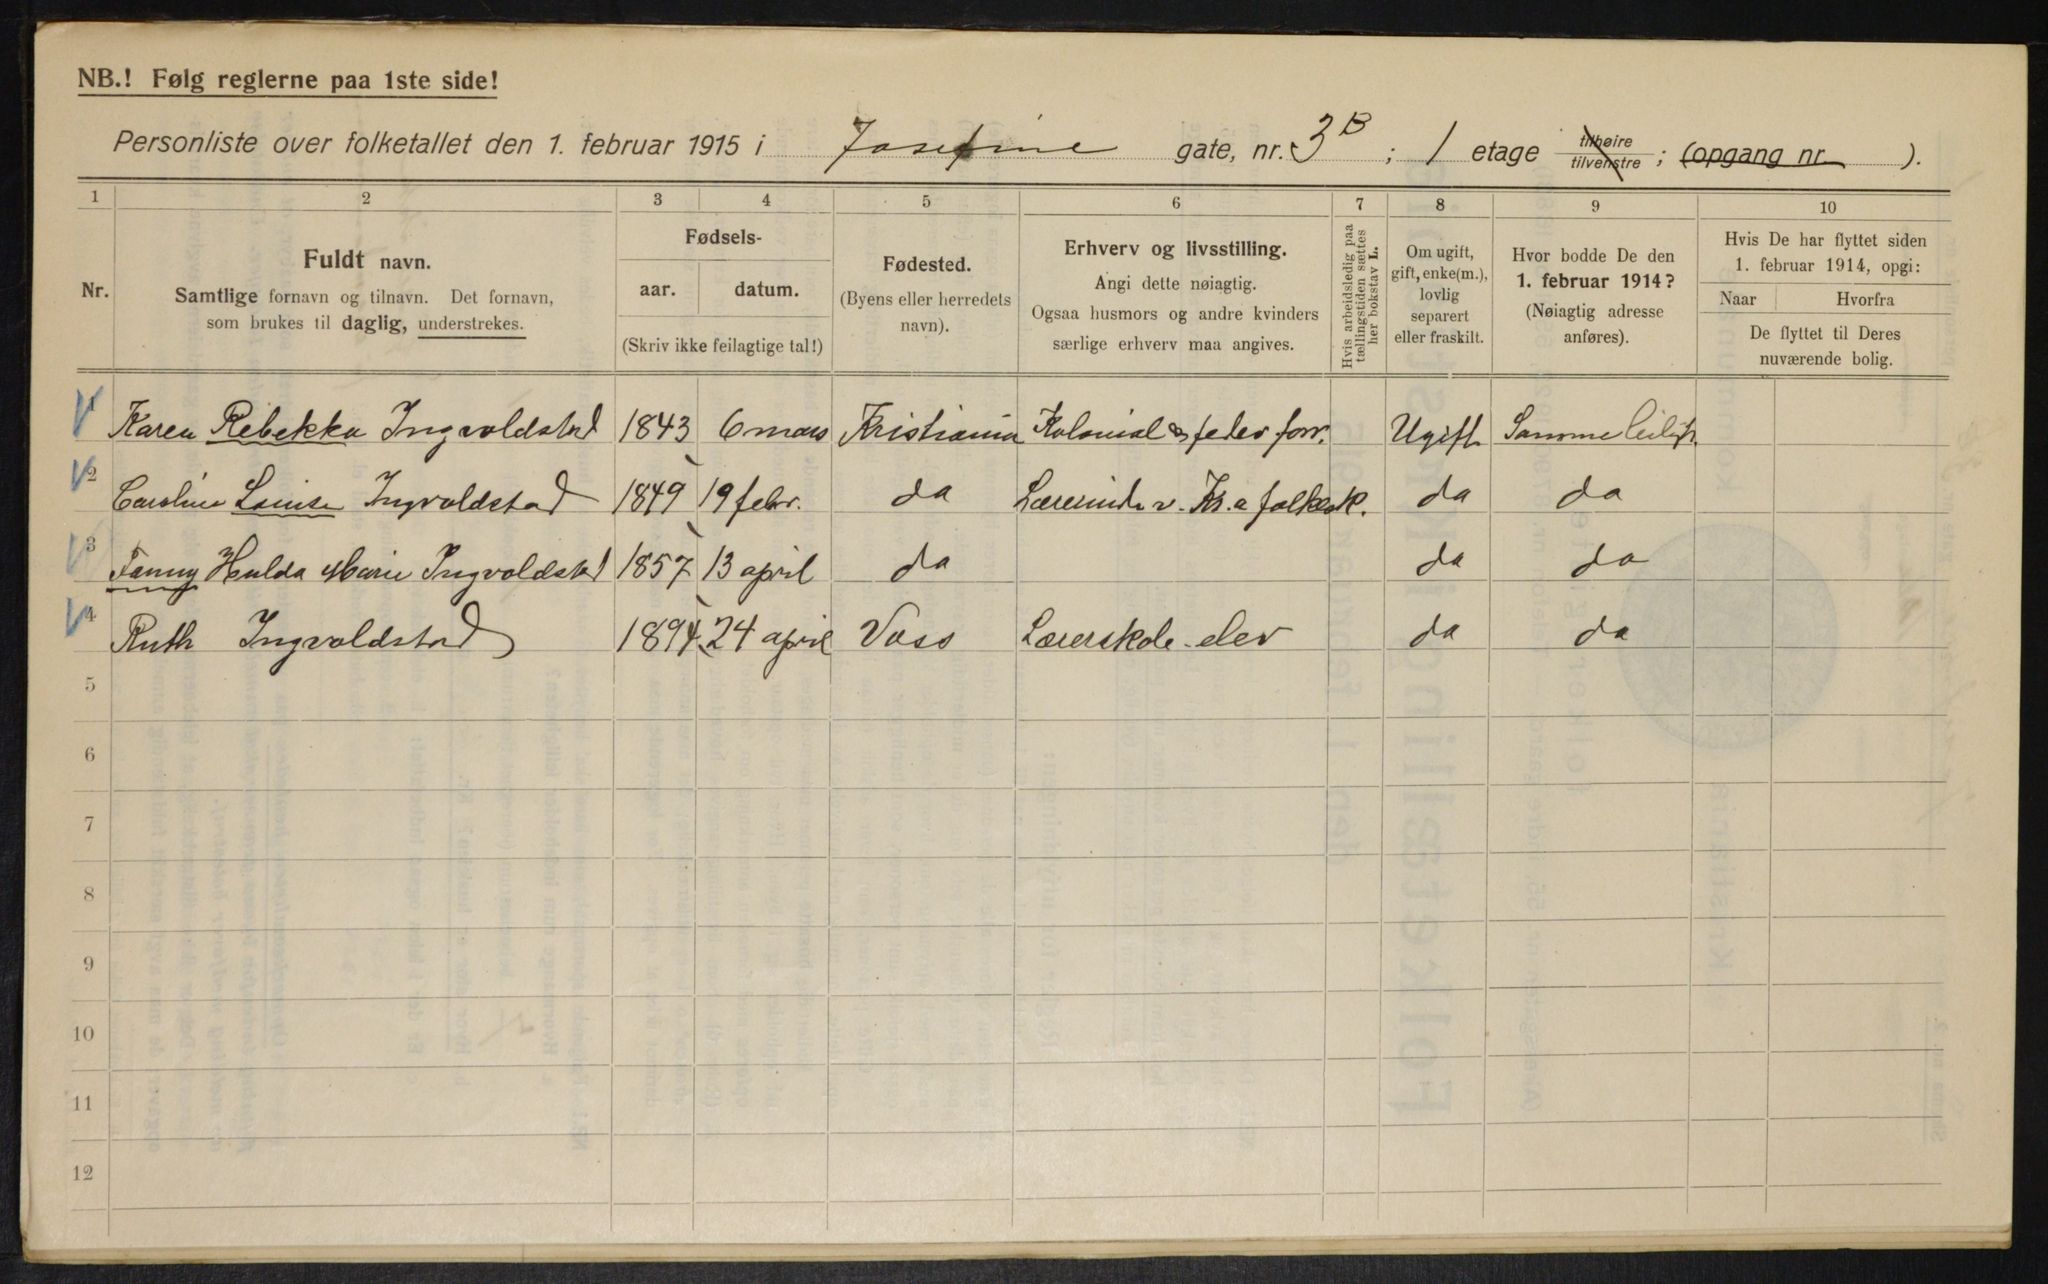 NB.! Følg reglerne paa 1ste side!
Personliste over folketallet den 1. februar 1915 i Josefine gate, nr. 3B ; 1 etage tilhøire tilvenstre ; (opgang nr. ).
1 2 3 4 5 6 7 8 9 10
Nr.
Fuldt navn.
Samtlige fornavn og tilnavn. Det fornavn,
som brukes til daglig, understrekes.
Fødsels-
aar. datum.
(Skriv ikke feilagtige tal!)
Fødested.
(Byens eller herredets
navn).
Erhverv og livsstilling.
Angi dette nøiagtig.
Ogsaa husmors og andre kvinders
særlige erhverv maa angives.
Hvis arbeidsledig paa
tællingstiden sættes
her bokstav L.
Om ugift,
gift, enke(m.),
lovlig
separert
eller fraskilt.
Hvor bodde De den
1. februar 1914?
(Nøiagtig adresse
anføres).
Hvis De har flyttet siden
1. februar 1914, opgi:
Naar Hvorfra
De flyttet til Deres
nuværende bolig.
1 Karen Rebekka Ingvoldstad 1843 6 mars Kristiania Kolonial & fedev forr. Ugift Samme leilgh.
2 Caroline Louise Ingvoldstad 1849 19 febr. da Lærerinde v. Kr.a folkesk. da da
3 Fanny Hulda Marie Ingvoldstad 1857 13 april da da da
4 Ruth Ingvoldstad 1894 24 april Voss Lærerskole-elev da da
5
6
7
8
9
10
11
12